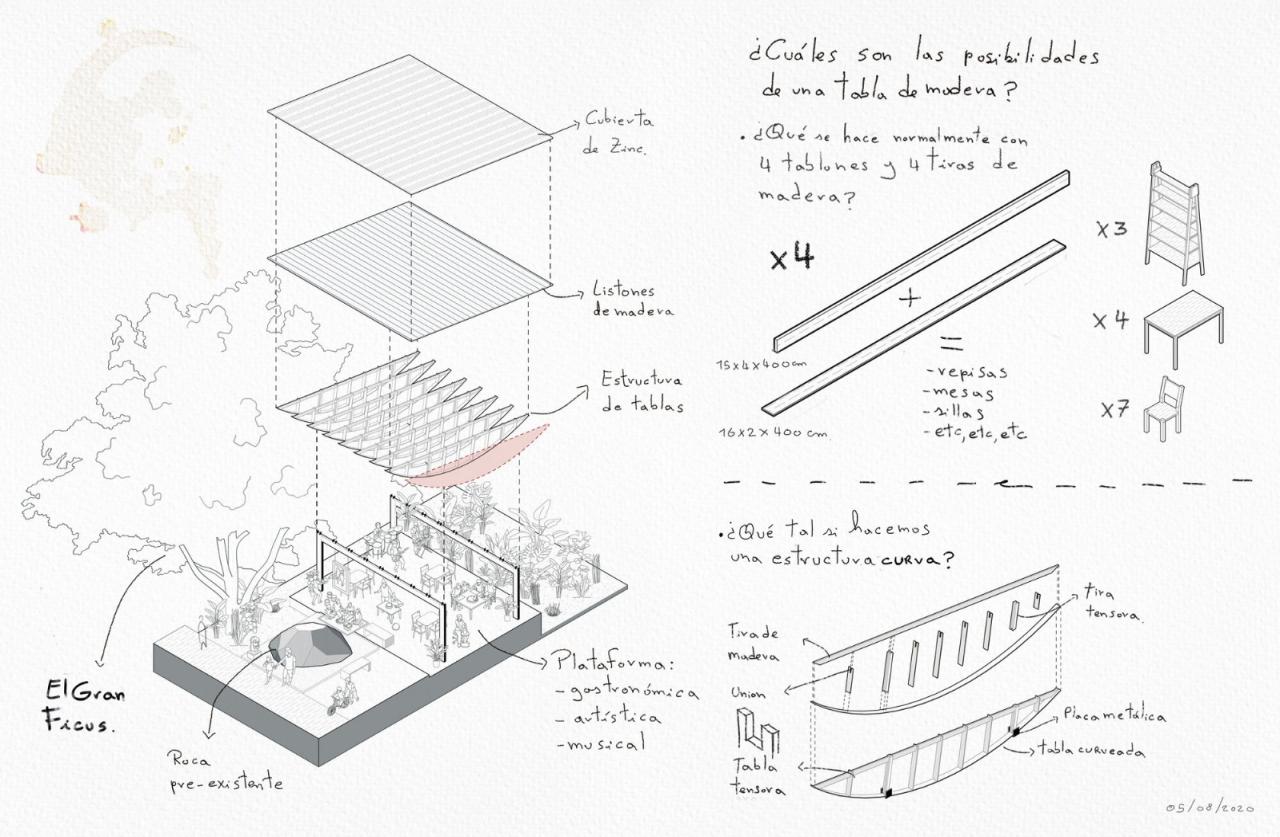 Cubierta
de Zinc.
Listones
de madera
Estructura
de tablas
El Gran
Ficus.
Roca
pre-existente
Plataforma:
- gastronómica
- artística
- musical
¿Cuáles son las posibilidades
de una tabla de madera?
• ¿Qué se hace normalmente con
4 tablones y 4 tiras de
madera?
x4
+
15x4x400cm
16x2x400 cm.
=
- repisas
- mesas
- sillas
- etc, etc, etc
x3
x4
x7
• ¿Qué tal si hacemos
una estructura curva?
Tira de
madera
Union
Tabla
tensora
tira
tensora.
Placa metálica
tabla curveada
05/08/2020